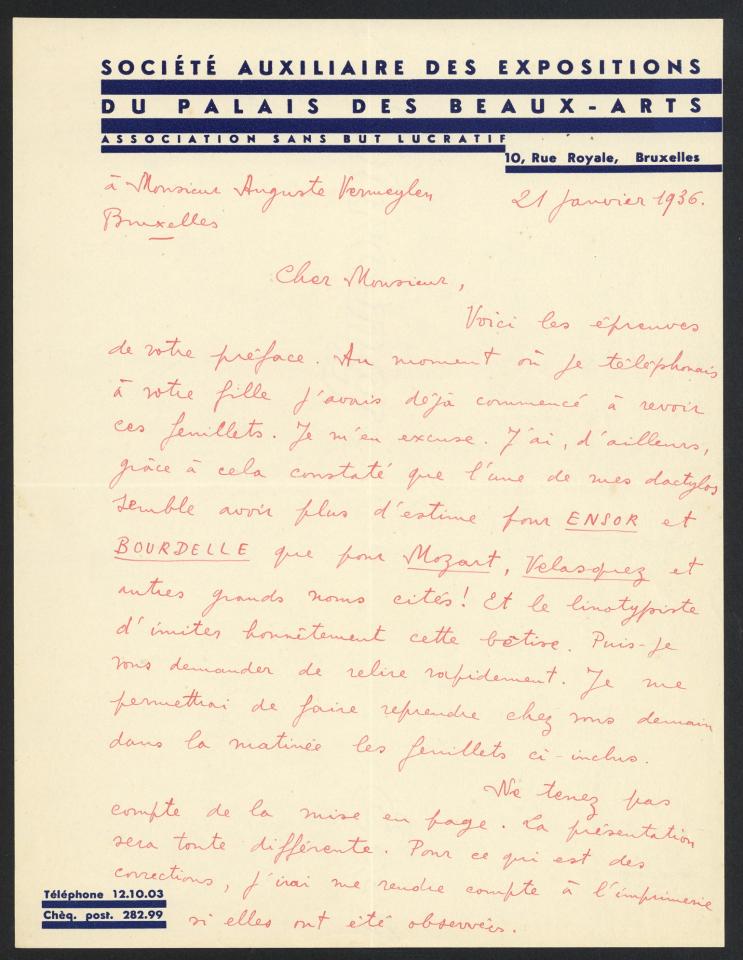 SOCIÉTÉ AUXILIAIRE DES EXPOSITIONS
DU PALAIS DES BEAUX-ARTS
ASSOCIATION SANS BUT LUCRATIF
10, Rue Royale, Bruxelles
à Monsieur Auguste Vermeylen
21 janvier 1936.
Bruxelles
Cher Monsieur,
Voici les épreuves
de votre préface. Au moment où je téléphonais
à votre fille j'avais déjà commencé à revoir
ces feuillets. Je m'en excuse. J'ai, d'ailleurs,
grâce à cela constaté que l'une de mes dactylos
semble avoir plus d'estime pour ENSOR et
BOURDELLE que pour Mozart, Velasquez et
autres grands noms cités! Et le linotypiste
d'imiter honnêtement cette bêtise. Puis-je
vous demander de relire rapidement. Je me
permettrai de faire reprendre chez vous demain
dans la matinée les feuillets ci-inclus.
Ne tenez pas
compte de la mise en page. La présentation
sera toute différente. Pour ce qui est des
corrections, j'irai me rendre compte à l'imprimerie
si elles ont été observées.
Téléphone 12.10.03
Chèq. post. 282.99